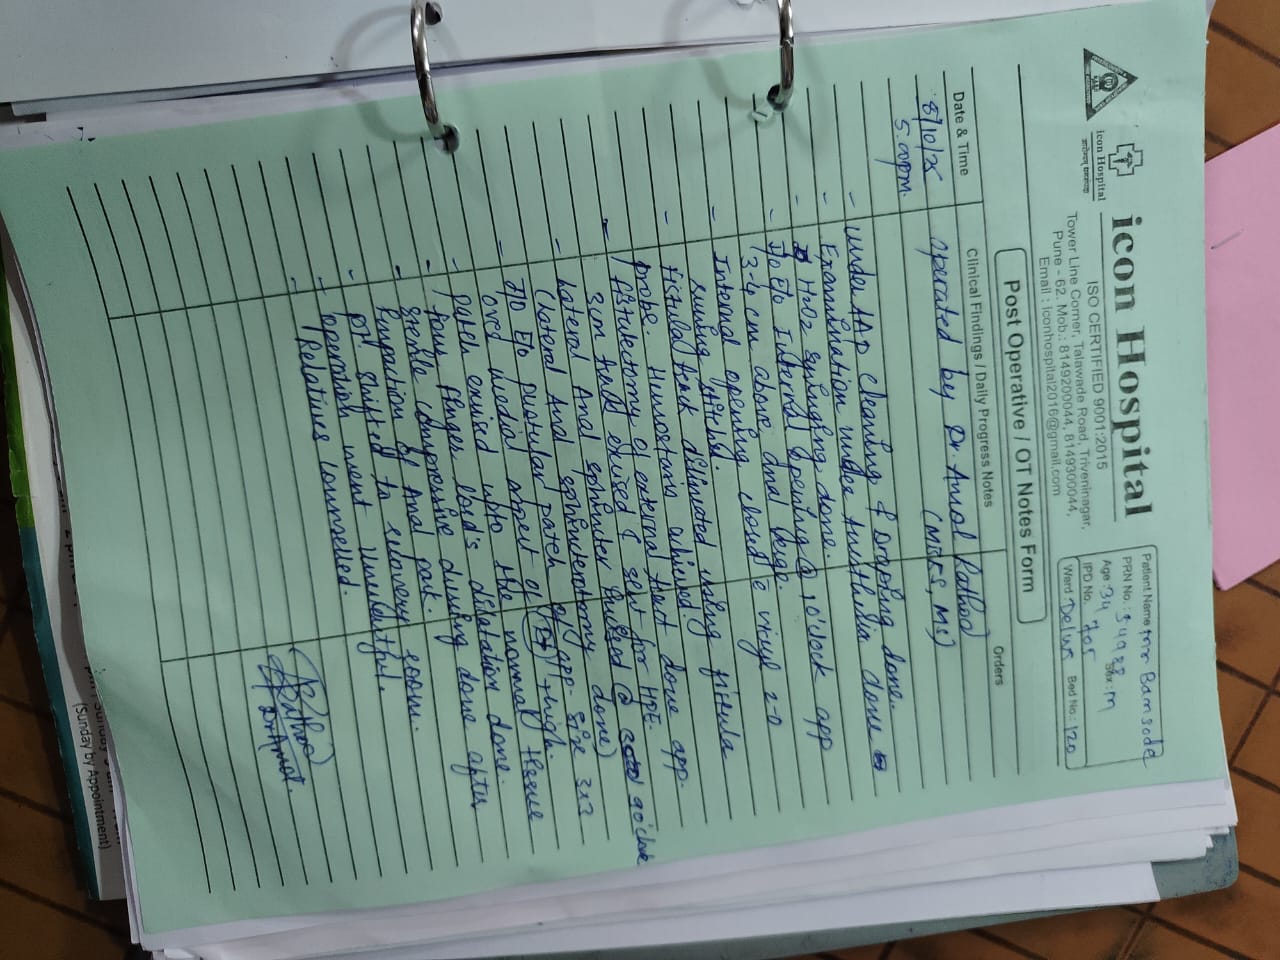 icon Hospital
icon Hospital
ISO CERTIFIED 9001:2015
Tower Line Corner, Talawade Road, Triveninagar,
Pune - 62. Mob.: 8149200044, 8149300044,
Email : iconhospital2016@gmail.com
Patient Name Bamsode
PRN No. : 54988
Age : 34 yrs Sex : M
IPD No.
Ward Delux Bed No.: 120
Post Operative / OT Notes Form
Date & Time
Clinical Findings / Daily Progress Notes
Orders
8/10/25
5.00pm.
operated by Dr. Amol Rathod
(MBBS, MS)
- under AAP cleaning & Draping done.
- Examination under Anesthesia done
- H2O2 syringing done.
- I/o E/o Internal opening @ 1 o'clock app
(3-4 cm above Anal verge.
- Internal opening closed c vicryl 2-0
suning stitch.
- fistula track dilineated using fistula
probe. Hemostasis achived.
- fistulectomy of external tract done app.
3cm tract excised & sent for HPE.
- Lateral Anal sphincter cuised @ 9 o'clock
(lateral Anal sphincterotomy done)
- I/o E/o pustular patch of app. size 3x2
over media aspect of thigh.
- patch exised upto the normal tissue
- four finger Lord's dilatation done.
- gentle compressive dressing done after
Reperation of Anal part.
- pt shifted to recovery room.
- operation went Uneventful.
- Relatives counselled.
Rathod
Dr. Amol.
(Sunday by Appointment)